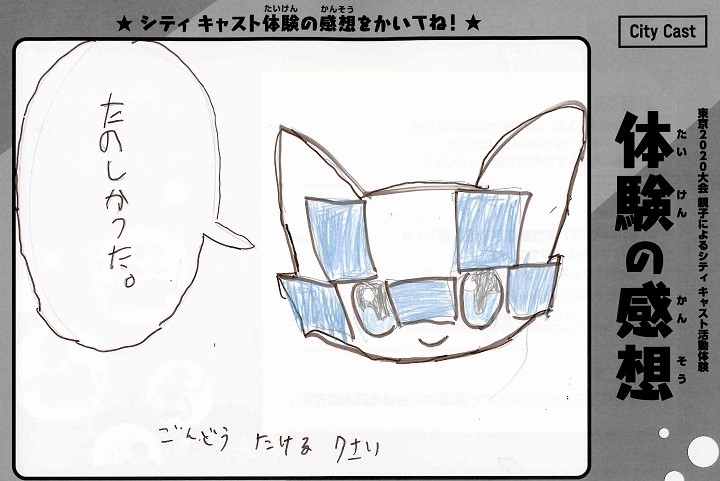 ★ シティ キャスト体験の感想をかいてね! ★
たいけん
かんそう
City Cast
東京2020大会 親子によるシティ キャスト活動体験
体験の感想
たい けん かん そう
たのしかった。
ごんどう たける 7さい